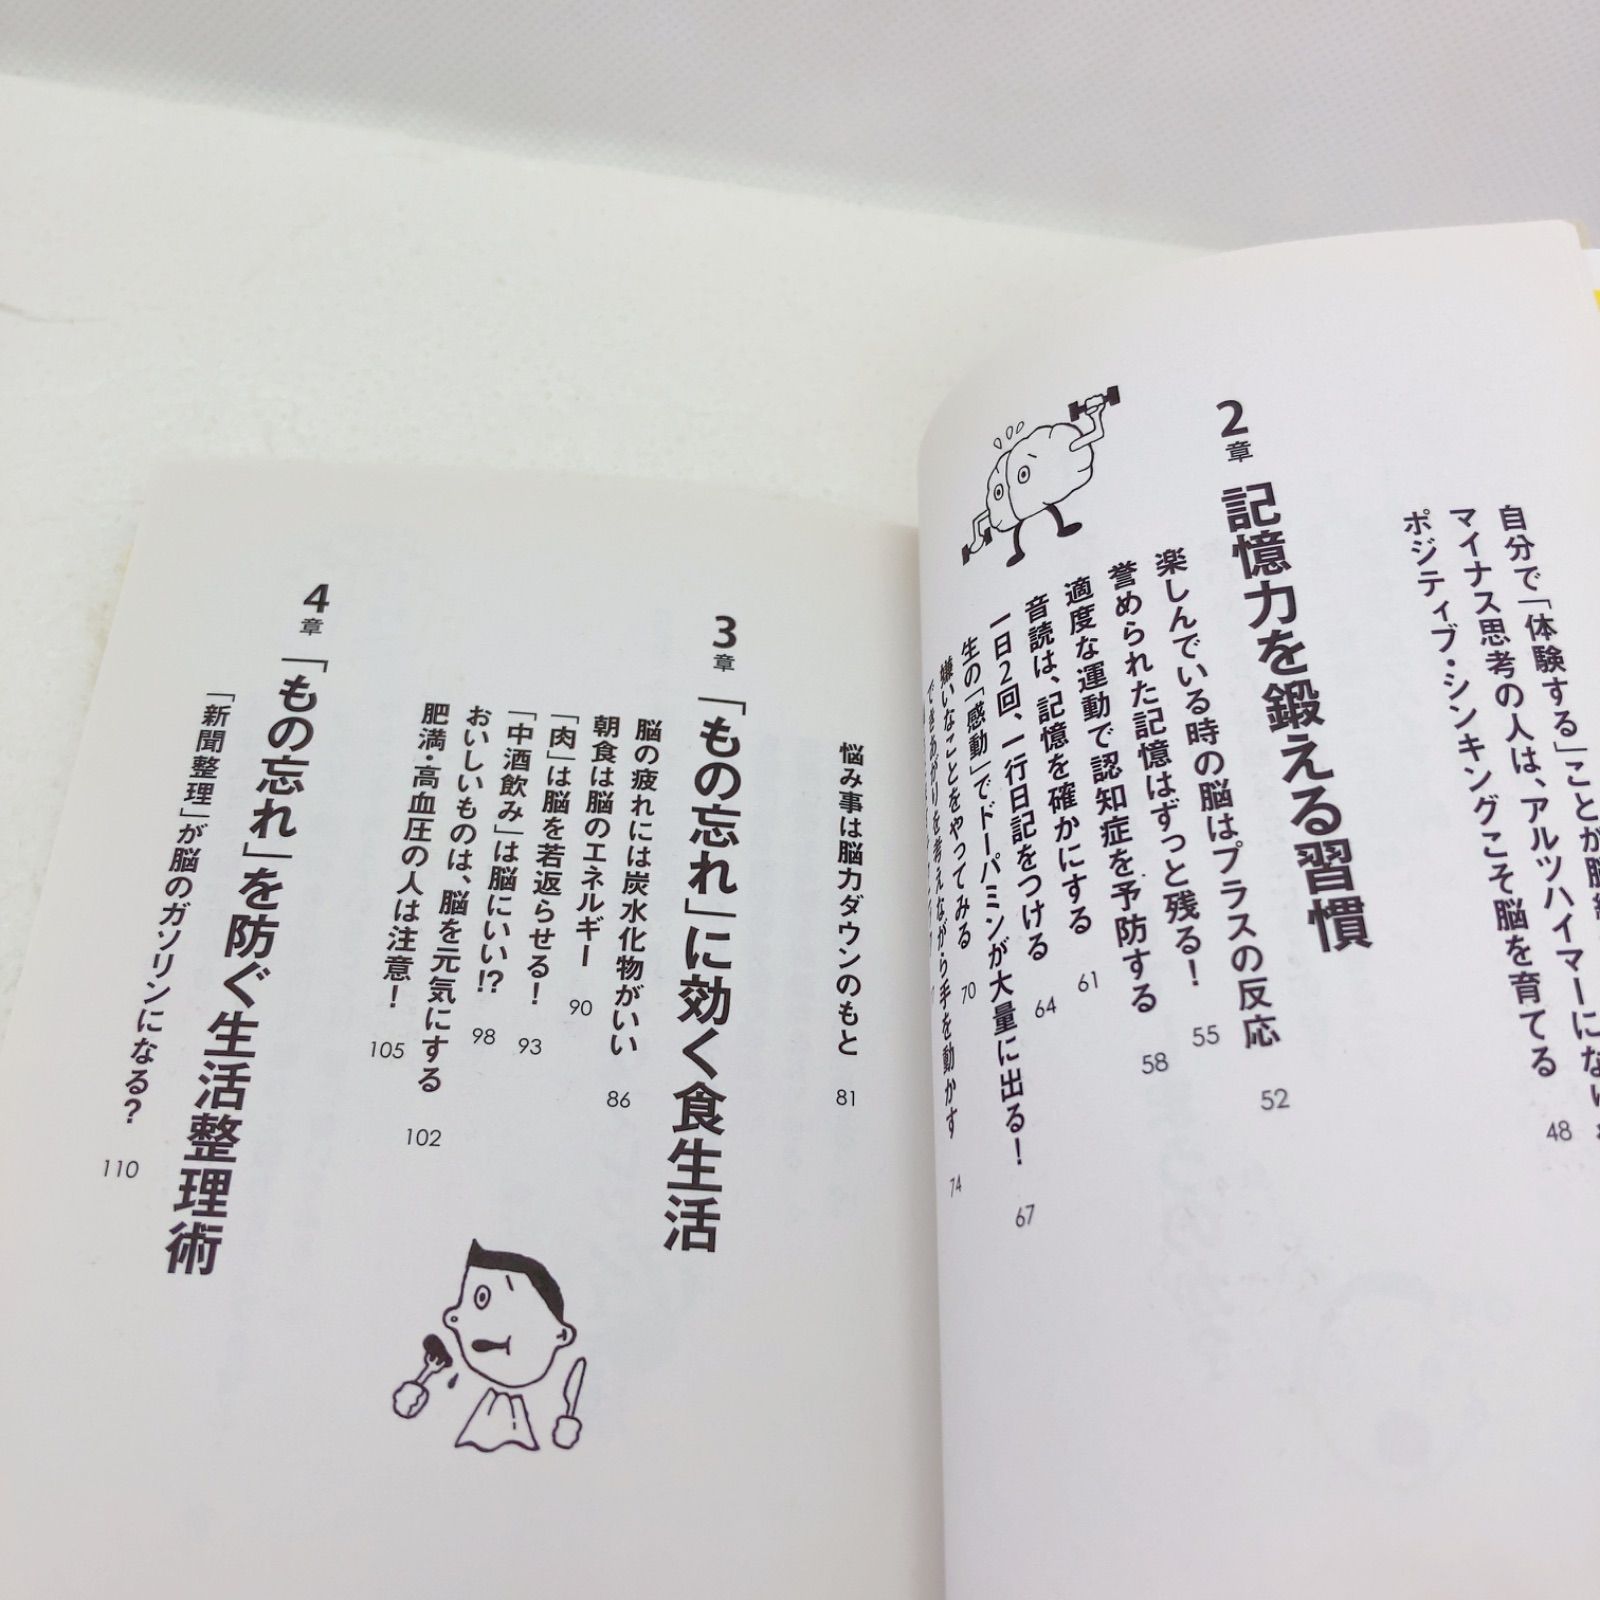 自分で「体験する」ことが脳
マイナス思考の人は、アルツハイマーになり
ポジティブ・シンキングこそ脳を育てる 48
2章 記憶力を鍛える習慣
楽しんでいる時の脳はプラスの反応 52
誉められた記憶はずっと残る! 55
適度な運動で認知症を予防する 58
音読は、記憶を確かにする 61
一日2回、一行日記をつける 64
生の「感動」でドーパミンが大量に出る! 67
嫌いなことをやってみる 70
できあがりを考えながら手を動かす 74
悩み事は脳力ダウンのもと 81
3章 「もの忘れ」に効く食生活
脳の疲れには炭水化物がいい 86
朝食は脳のエネルギー 90
「肉」は脳を若返らせる! 93
「中酒飲み」は脳にいい!? 98
おいしいものは、脳を元気にする 102
肥満・高血圧の人は注意! 105
4章 「もの忘れ」を防ぐ生活整理術
「新聞整理」が脳のガソリンになる? 110